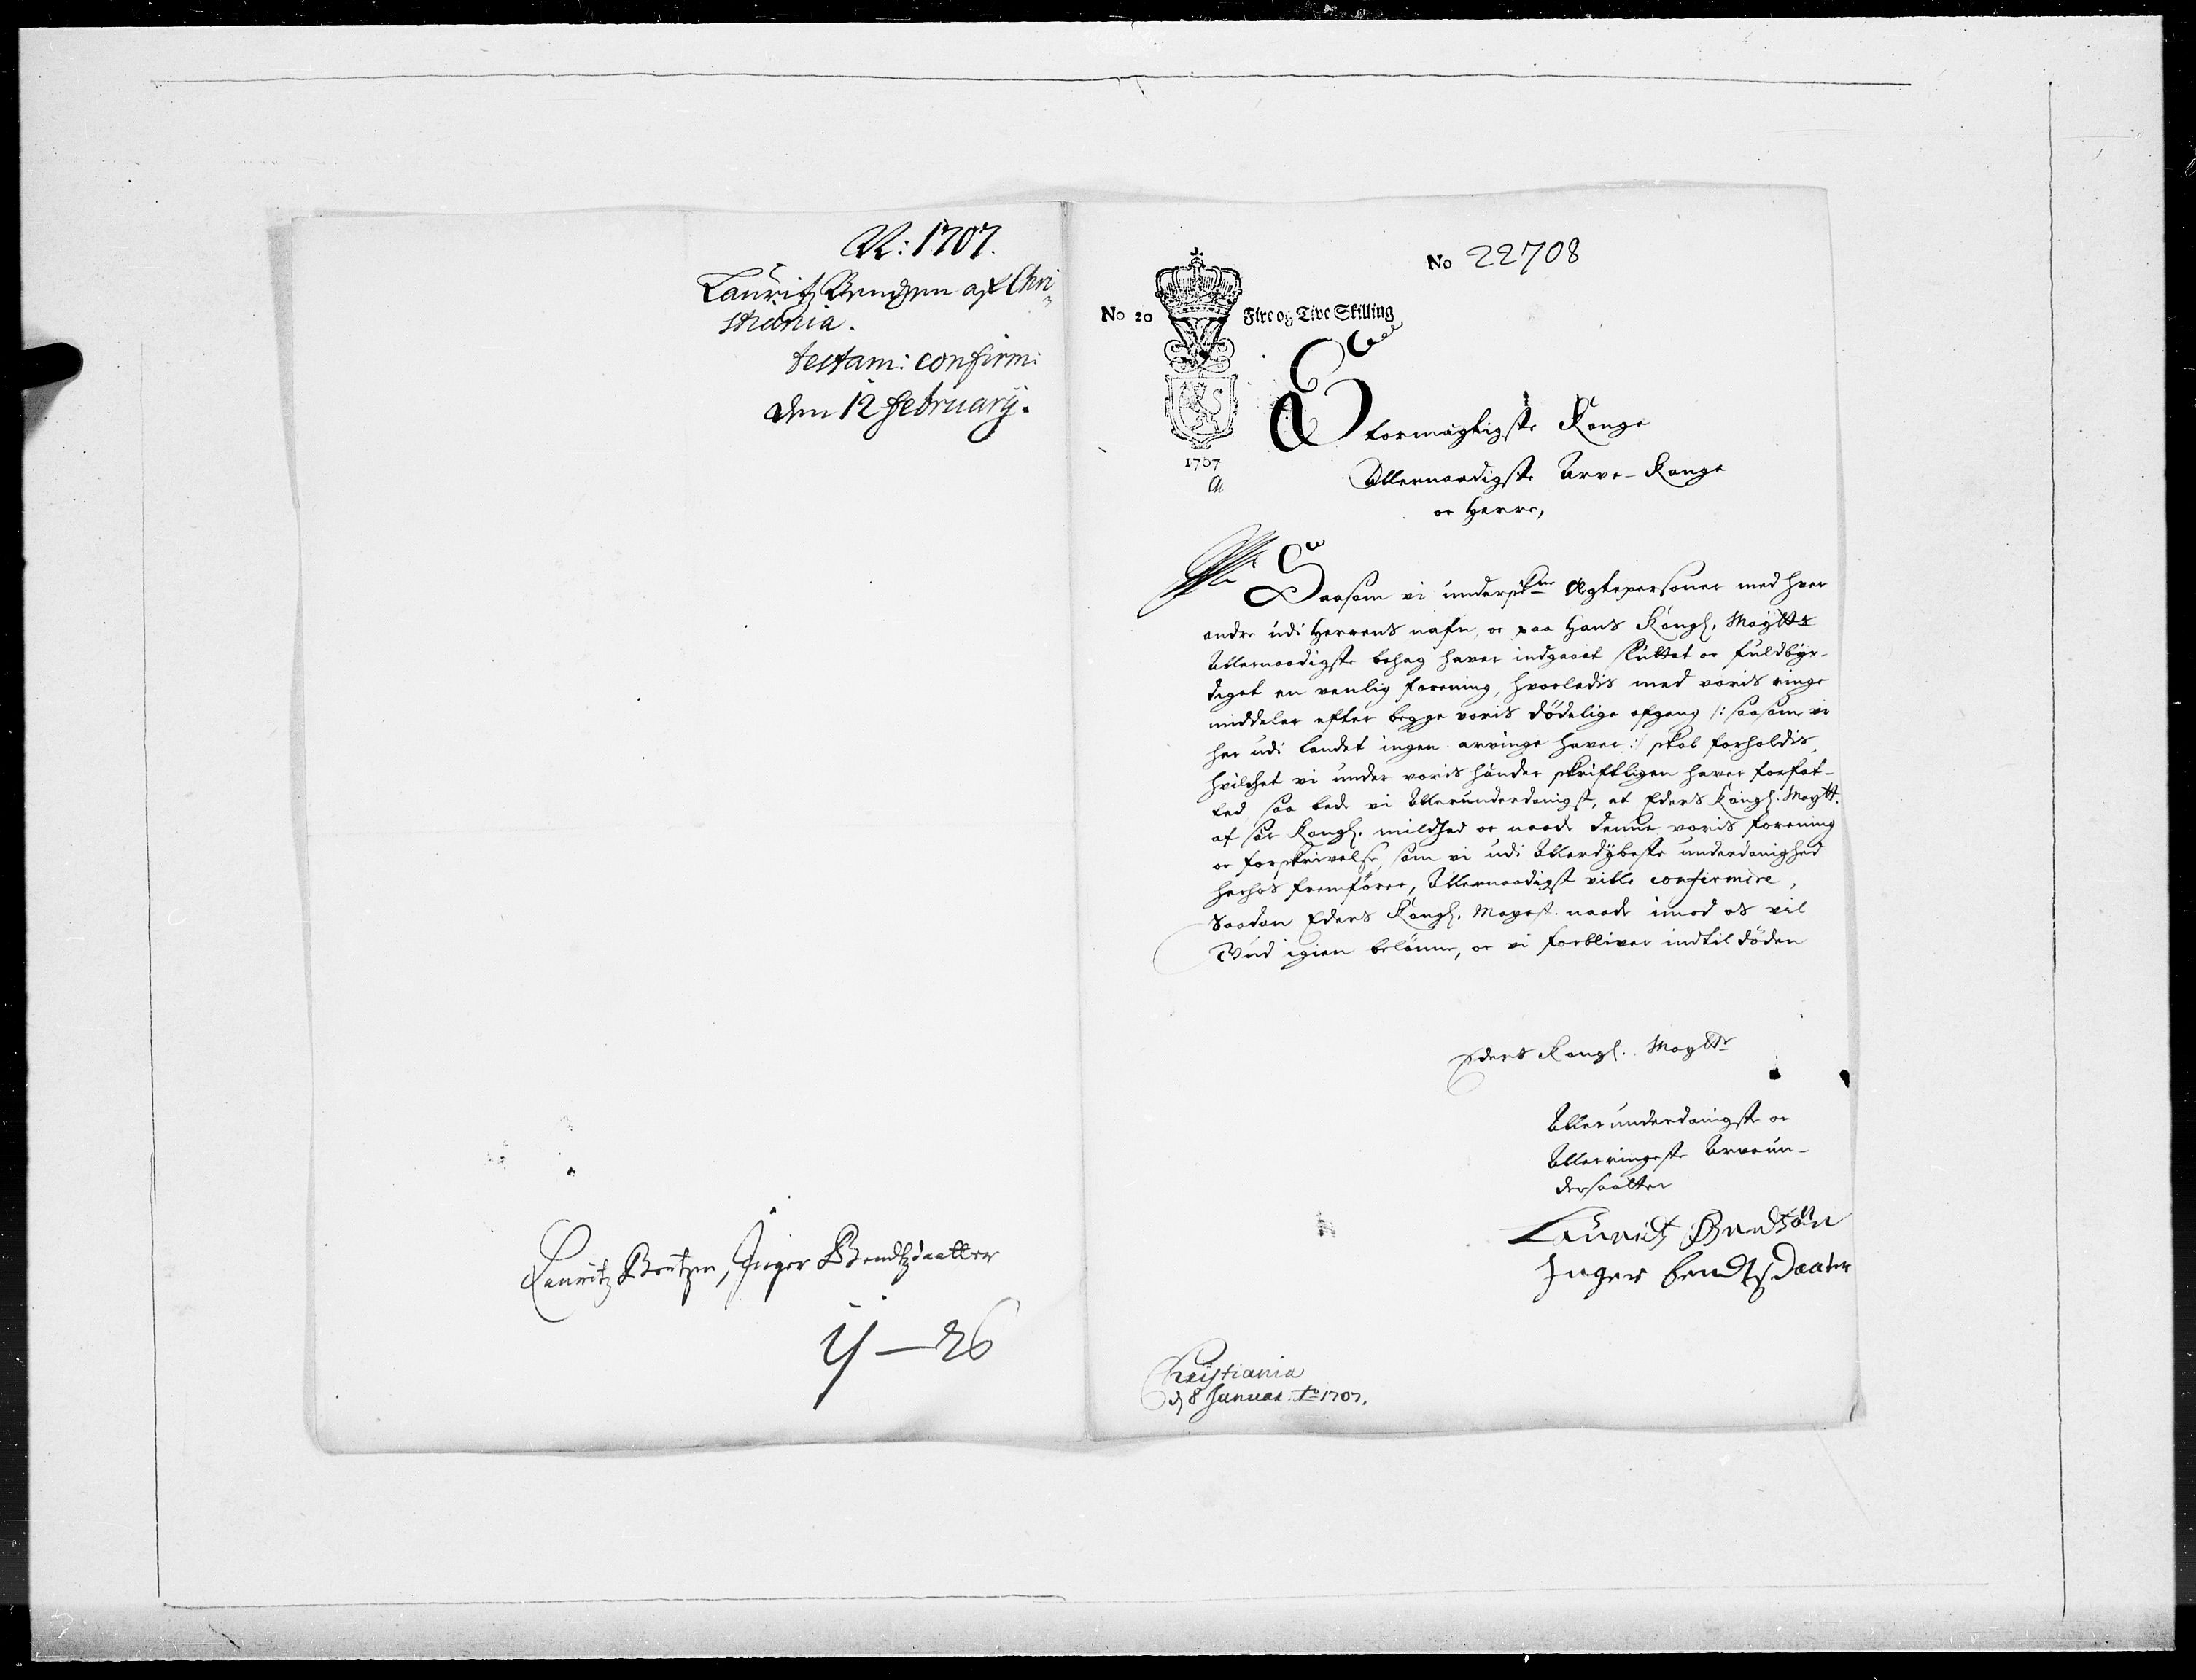 R: 1707.
Lauritz Bendzen af Chri-
stiania.
testam: confirm:
den 12 february.
Lauritz Bentzen, Inger Bendtzdaatter
No 22708
No 20 Fire og Tive Skilling
1707
Stormægtigste Konge
Allernaadigste Arve-Konge
oc Herre,
Saasom vi underskne Ægtepersoner med hver
andre udi Herrens nafn, oc paa Hans Kongl. Maytts
Allernaadigste behag haver indgaaet sluttet oc fuldbyr-
diget en venlig forening, hvorledis med voris ringe
middeler efter begge voris dödelige afgang /: saasom vi
her udi landet ingen arvinge haver :/ skal forholdis,
hvilchet vi under voris hænder skriftligen haver forfat-
ted saa bede vi Allerunderdanigst, at Eders Kongl. Maytt.
af sær Kongl. mildhed oc naade denne voris forening
oc forskrivelse, som vi udi Allerdybeste underdanighed
herhos fremförer, Allernaadigst ville confirmere,
Saadan Eders Kongl. Mayest. naade imod os vil
Gud igien belönne, oc vi forbliver indtil döden
Eders Kongl. Maytts
Allerunderdanigste oc
Allerringeste Arveun-
dersaatter
Lauridtz Bendtsön
Inger bendtzdaater
Christiania
d 8 Januar. Ao 1707.